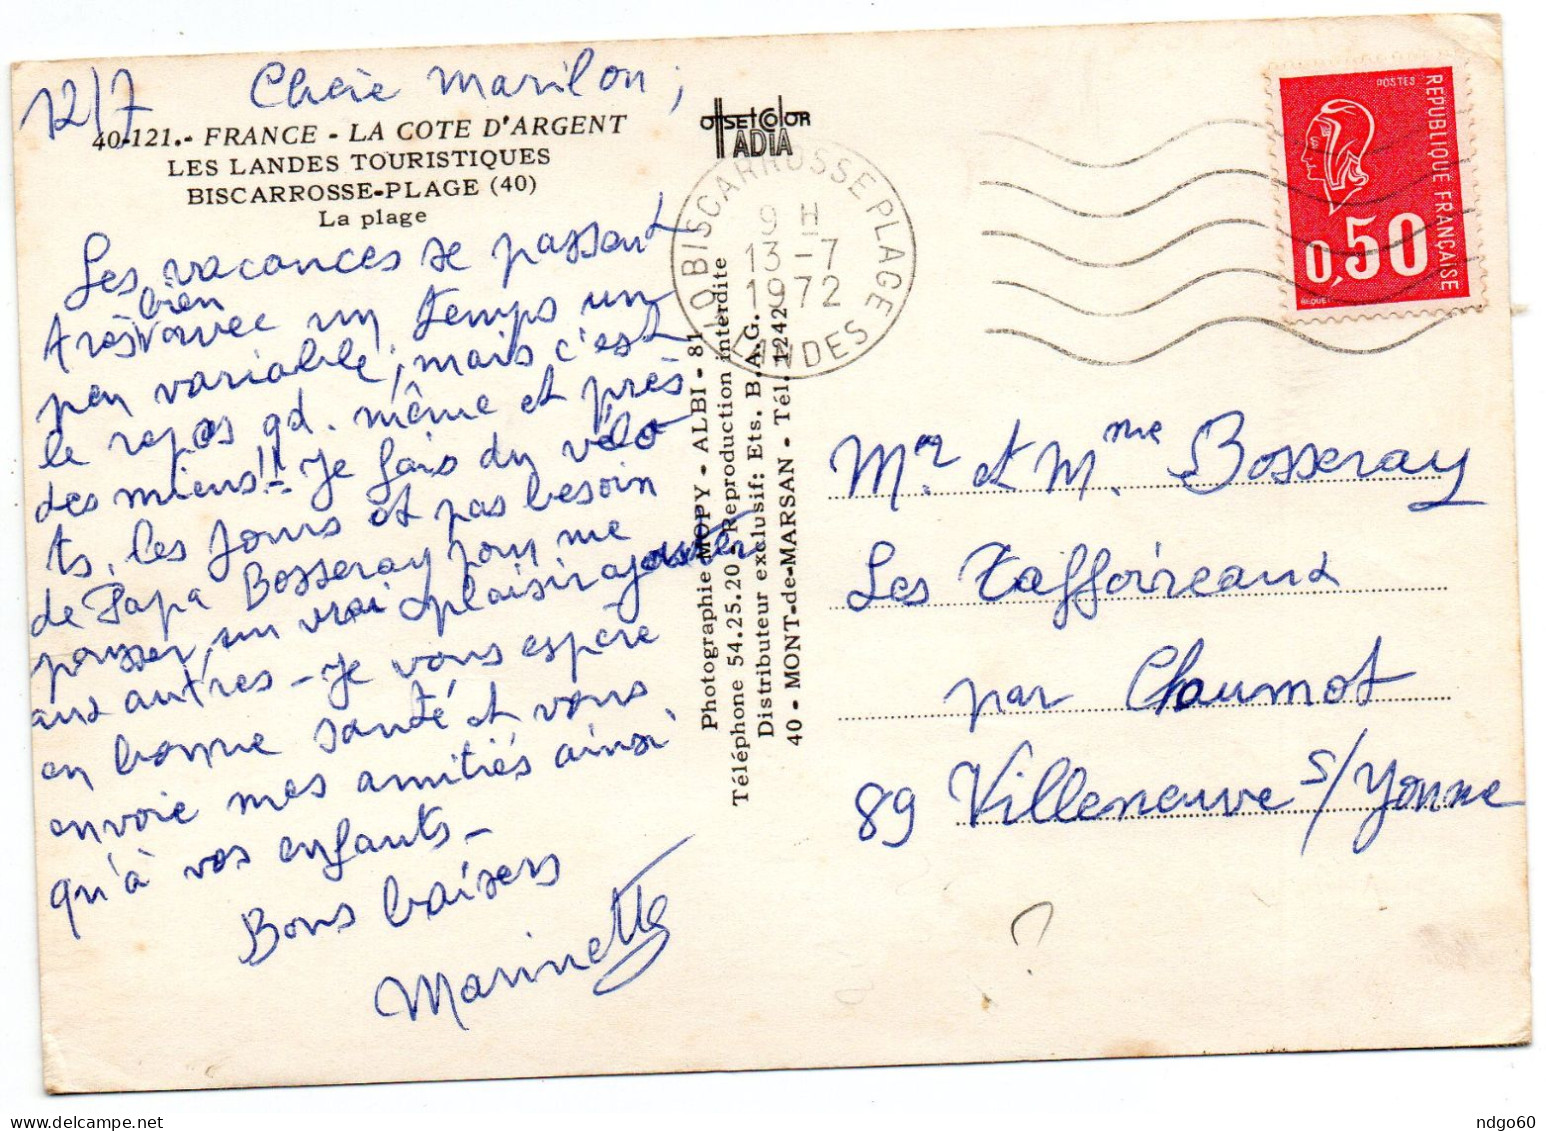 12/7 Chère Marilou,
40-121.- FRANCE - LA COTE D'ARGENT
LES LANDES TOURISTIQUES
BISCARROSSE-PLAGE (40)
La plage
Les vacances se passent
très bien avec un temps un
peu variable, mais c'est
le repos qd. même et près
des miens!! - Je fais du vélo
ts. les jours et pas besoin
de Papa Bosseray pour me
pousser, un vrai plaisir ajouter
aux autres - Je vous espère
en bonne santé et vous
envoie mes amitiés ainsi
qu'à vos enfants -
Bons baisers
Marinette
OffSET COlOR
ADIA
Photographie MOPY - ALBI - 81
Téléphone 54.25.20 - Reproduction interdite
Distributeur exclusif: Ets. B.A.G.
40 - MONT-de-MARSAN - Tél. 1242
40 BISCARROSSE PLAGE
9 H
13 - 7
1972
LANDES
POSTES
REPUBLIQUE FRANÇAISE
0,50
BEQUET
Mr. et Mme Bosseray
Les Taffoireaux
par Chaumot
89 Villeneuve s/Yonne
ndgo60